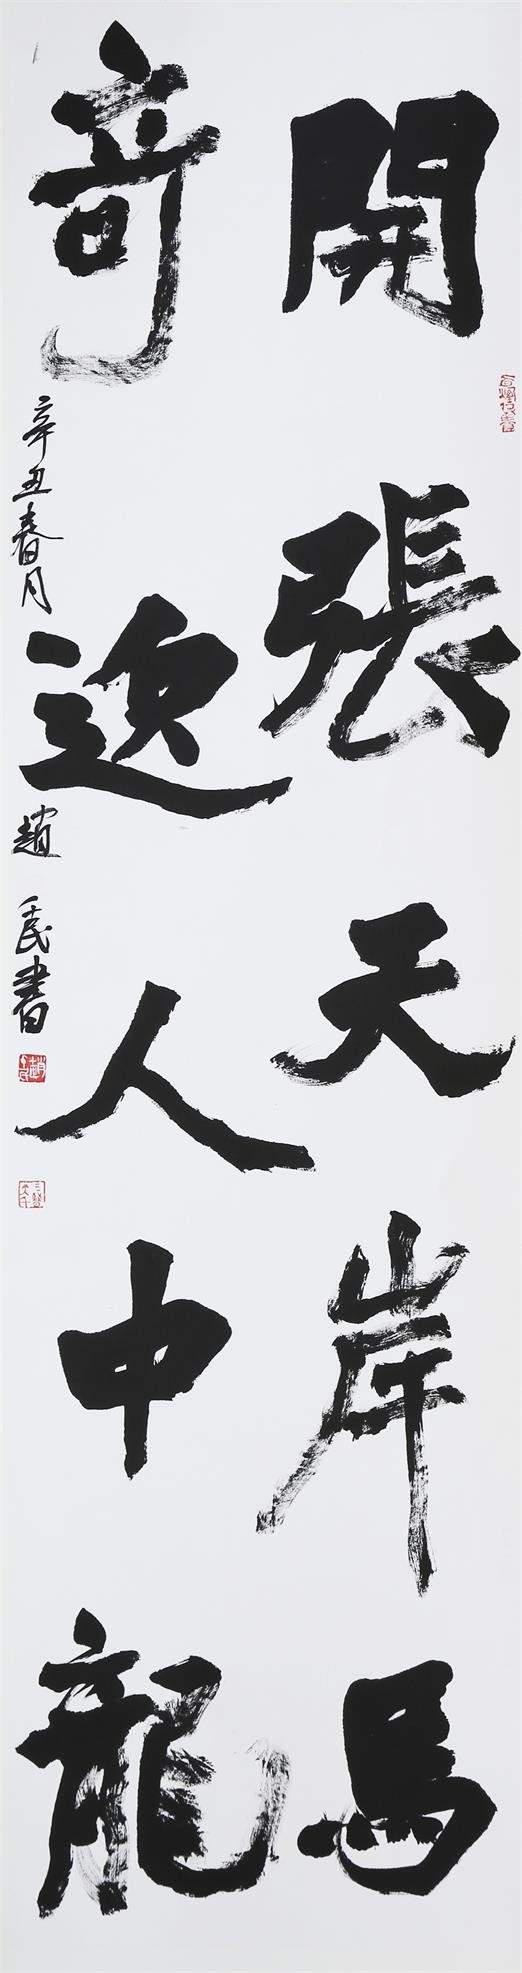 開張天岸馬
奇逸人中龍
辛丑春月
趙 民書